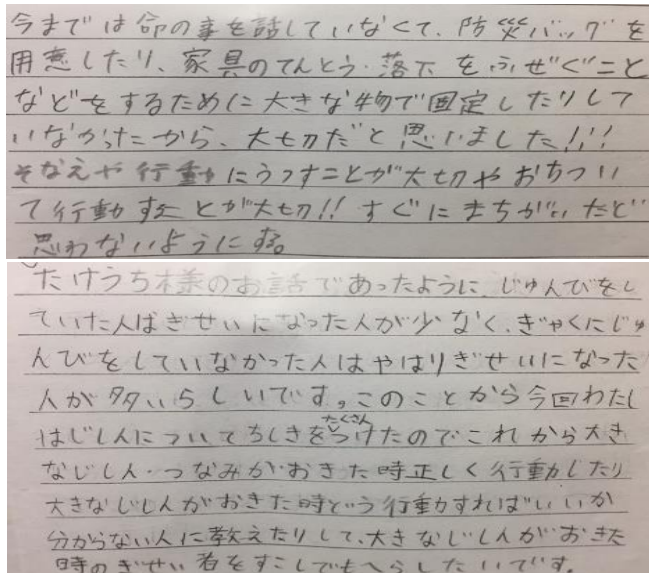 今までは命の事を話していなくて、防災バッグを
用意したり、家具のてんとう・落下をふせぐこと
などをするために大きな物で固定したりして
いなかったから、大切だと思いました!!!
そなえや行動にうつすことが大切やおちつい
て行動することが大切!! すぐにまちがいだと
思わないようにする。
たけうち様のお話であったように、じゅんびをし
ていた人はぎせいになった人が少なく、ぎゃくにじゅ
んびをしていなかった人はやはりぎせいになった
人が多いらしいです。このことから今回わたし
はじしんについてちしきをたくさんつけたのでこれから大き
なじしん・つなみがおきた時正しく行動したり
大きなじしんがおきた時どう行動すればいいか
分からない人に教えたりして、大きなじしんがおきた
時のぎせい者をすこしでもへらしたいです。